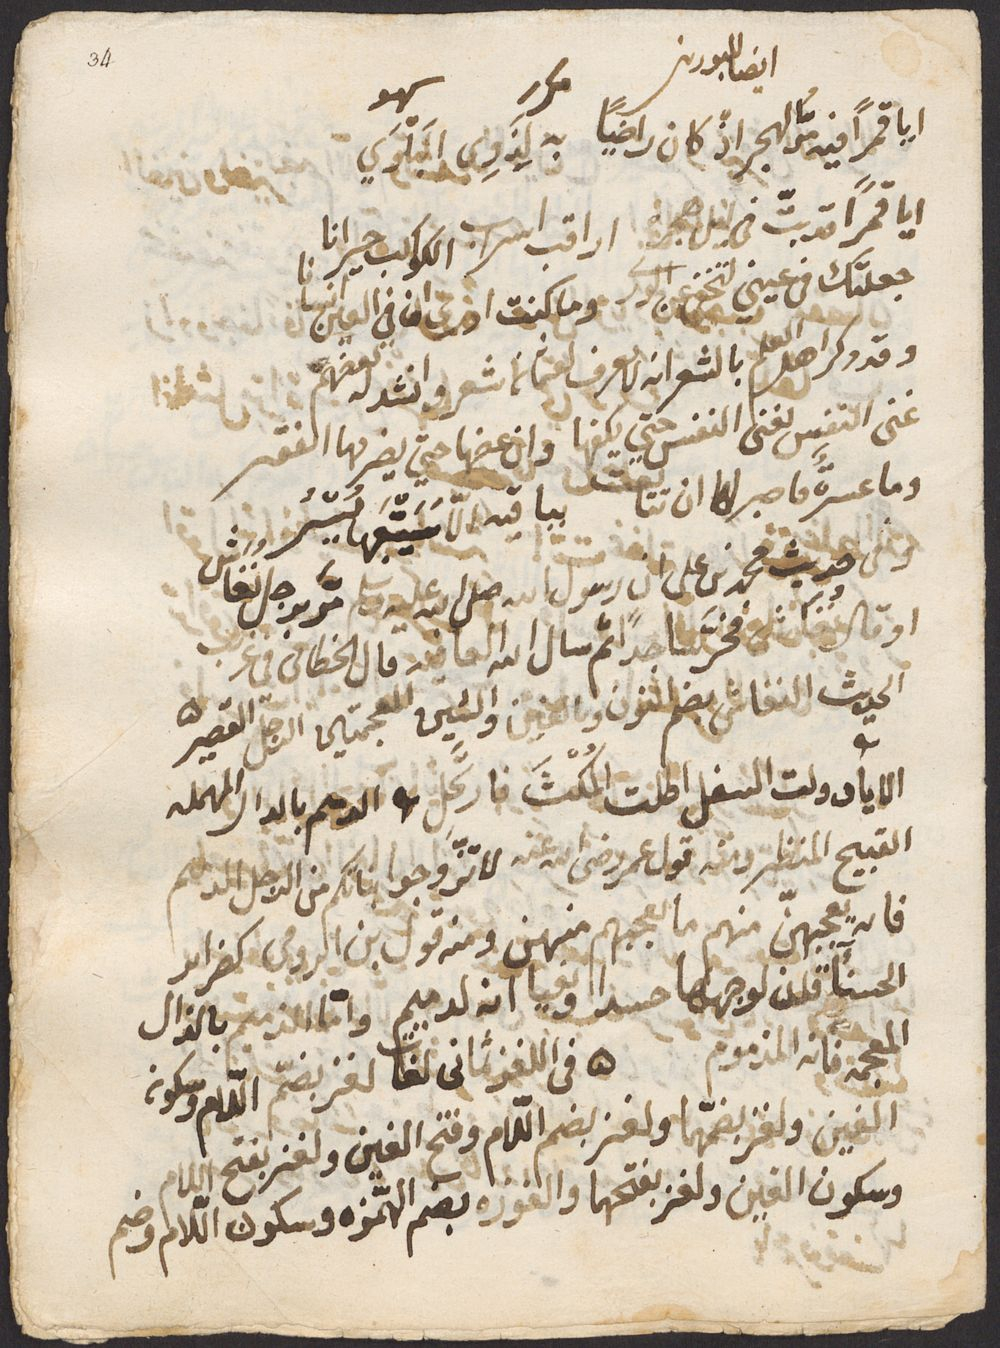 34
ايضا للبوريني
مكرر سهو
ايا قمرًا فيه مرّ الهجر اذ كان راضيًا به لِذَوِي البَلْوَي
ايا قمرًا قد بتّ في ليل هجره اراقب اسراب الكواكب حيرانا
جعلتك في عيني لتخفي عن الورى وما كنت ادري ان في العين انسانا
وقد ذكر اهل العلم بالشعر انه لا يعرف لعثمان شعر وانشد له بعضهم
غنى النفس يغنى النفس حتى يكفها وان عضها حتى يضر بها الفقر
وما عسرةً فاصبر لها ان تتابعت بباقية الّا سَيَتْبَعها يُسْرُ
وفى حديث محمد بن على ان رسول الله صلى الله عليه وسلم مرّ برجل نغاش
او قال نغاشى فخرّ ساجدًا ثم سال الله العافية قال الخطابى في غريب
الحديث النغاش بضم النون وبالغين والشين المعجمتين الرجل القصير ه
الا يا دولت السفل اطلت المُكْثَ فارحَلى الدميم بالدال المهمله
القبيح المنظر ومنه قول عمر رضى الله عنه لا تزّوجوا بناتكم من الرجل الدميم
فانه يعجبهنّ منهم ما يعجبهم منهن ومنه قول بن الرومى كضراير
الحسنآ قلن لوجهها حسدا وبغيا انه لدميم وامّا الذميم بالذال
المعجمة فانه المذموم ه في اللغز ثمانى لغات لغز بضمّ اللّام وسكون
الغين ولغز بضمّها ولغز بضم اللّام وفتح الغين ولغز بفتح اللام
وسكون الغين ولغز بفتحها والغوزه بضم الهَمْزه وسكون اللّام وضم